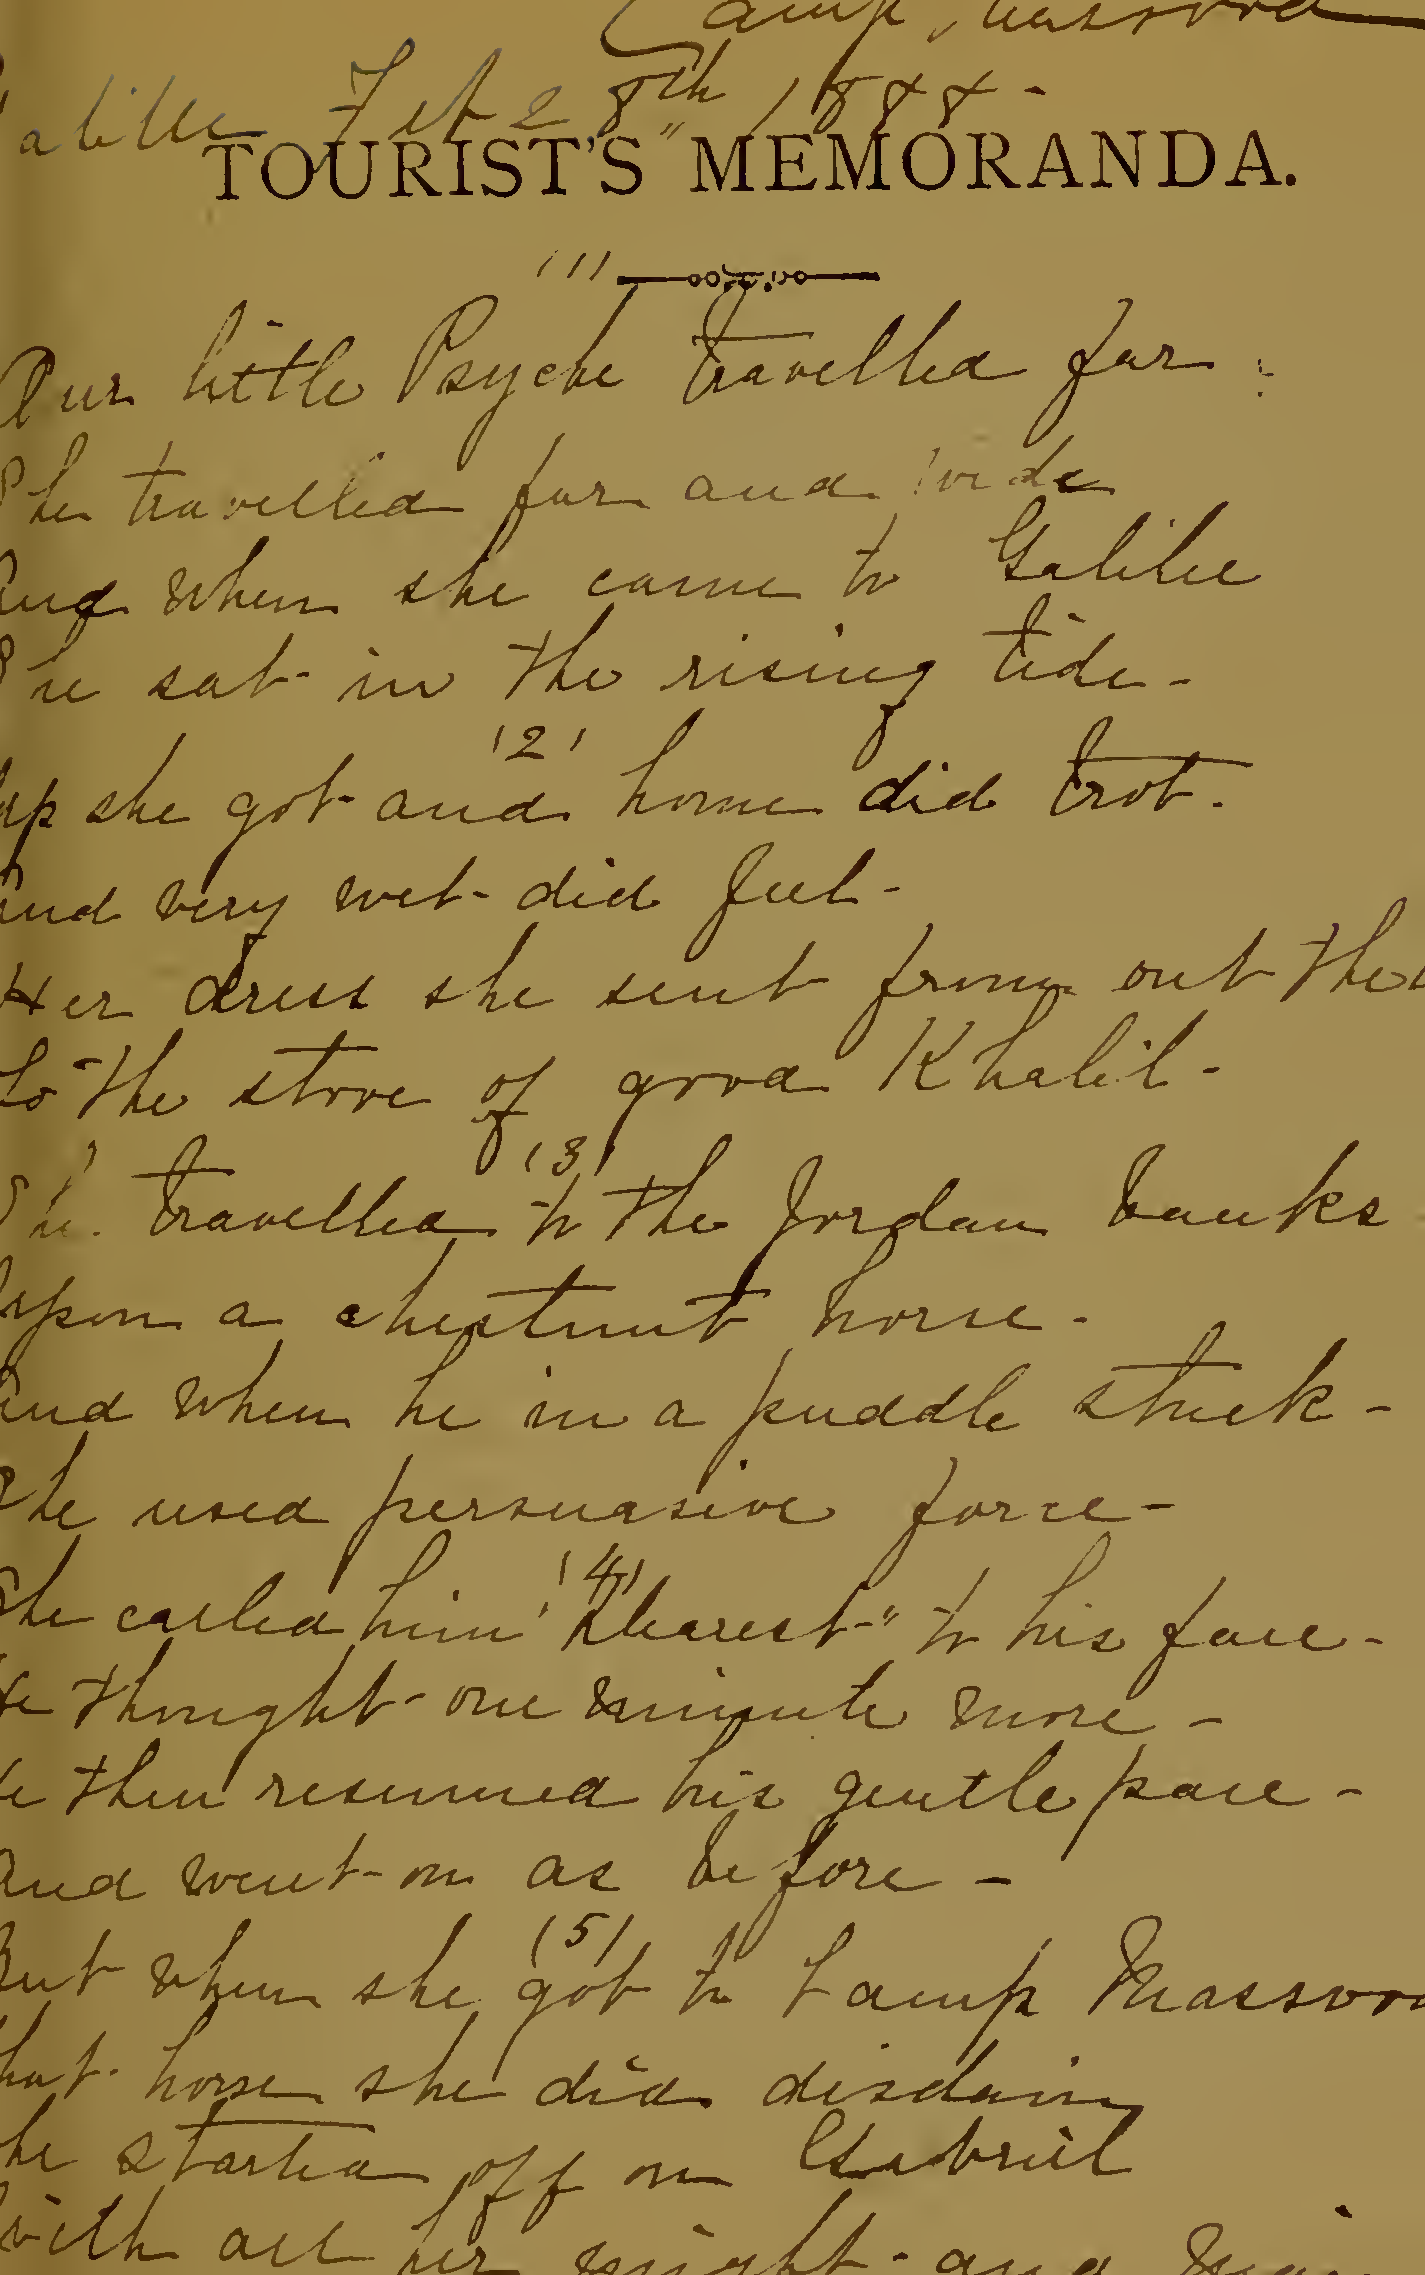 Camp, Massora
Galilee Feb 28th 1888 -
TOURIST'S MEMORANDA.
(1)
Our little Psyche travelled far:
She travelled far and wide
And when she came to Galilee
She sat in the rising tide -
(2)
Up she got and home did trot.
And very wet did feel -
Her dress she sent from out the
To the stove of good Khalil -
(3)
She travelled to the Jordan banks
Upon a chestnut horse -
And when he in a puddle stuck -
She used persuasive force -
(4)
She called him "dearest" to his face -
He thought one minute more -
He then resumed his gentle pace -
And went on as before -
(5)
But when she got to Camp Massora
That horse she did disdain
She started off on Gabriel
With all her might - and